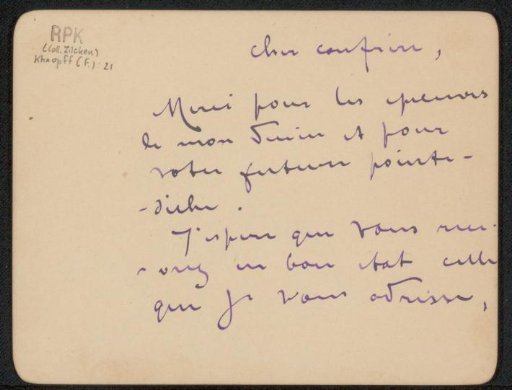 RPK
(Coll. Zilcken)
Khnopff (F.): 21
Cher confrère,
Merci pour les épreuves
de mon dessin et pour
votre fusteuse pointe-
-sèche.
J'espère que vous rece-
-vrez en bon état celle
que je vous adresse,